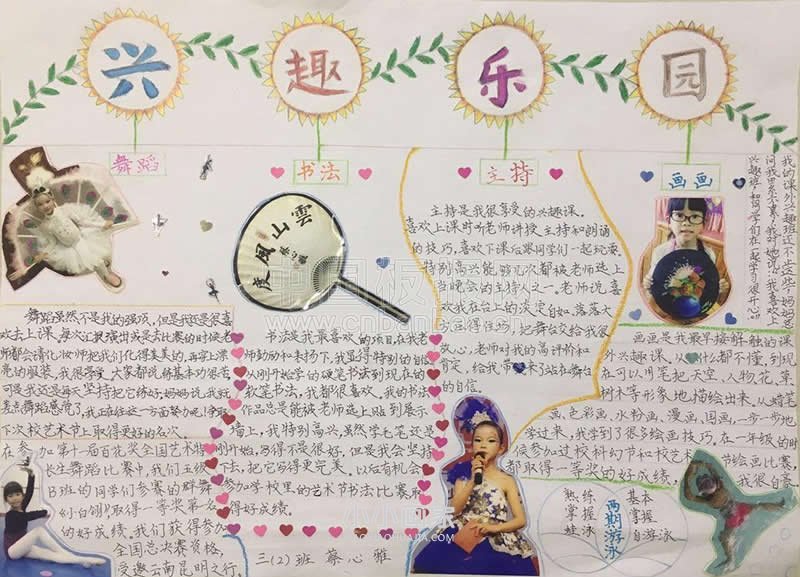 兴趣乐园
舞蹈
书法
主持
画画
舞蹈虽然不是我的强项，但是我还是很喜
欢去上课。每次汇报演出或是去比赛的时候老
师都会请化妆师把我们化得美美的，再穿上漂
亮的服装，我很享受。大家都说练基本功很苦
可是我还是每天坚持把它练好。妈妈说，我就
差点舞蹈感觉了，我正在往这一方面努力呢！争取
下次校艺术节上取得更好的名次。
在参加第十一届百花奖全国艺术
长生舞蹈比赛中，我们五级
B班的同学们参赛的群舞
《小白翎》取得一等奖第一名
的好成绩。我们获得参加
全国总决赛资格，
受邀云南昆明之行。
雲
山
鳳
度
书法是我最喜欢的项目，在我老
师鼓励和表扬下，我显得特别的自
从刚开始学的硬笔书法到现在的
软笔书法，我都很喜欢。我的书法
作品总是能被老师选上贴到展示
墙上，我特别高兴。虽然学毛笔还是
刚开始，写得不是很好，但是我会坚持
下去，把它写得更完美，以后有机会
参加学校里的艺术节书法比赛取
得好成绩。
三（2）班 蔡心雅
主持是我很享受的兴趣课。
喜欢上课时老师讲授主持和朗诵
的技巧，喜欢下课后跟同学们一起玩耍。
特别高兴能够几次都被老师选上
当晚会的主持人之一。老师说喜
欢我在台上的淡定自如，落落大
方，表现得住巧，把舞台交给我很
放心，老师对我的高评价和
肯定，给我带来了站在舞台
的自信。
我的课外兴趣班还不止这些，妈妈总
问我累不累，我对她说：我喜欢上
兴趣班，和同学们在一起学习很开心！
画画是我最早接触的课
外兴趣课，从什么都不懂，到现
在可以用笔把天空、人物、花草、
树木等形象地描绘出来。从蜡笔
画、色彩画、水粉画、漫画、国画，一步一步地
学过来，我学到了很多绘画技巧，在一年级的时
候参加过校科幻节和校艺术节书绘画比赛，
都取得一等奖的好成绩，我很自豪
熟练
掌握
蛙泳
两期游泳
基本
掌握
自游泳
中国板报网
www.cnbanbao.cn
小小画家
XIAOXIAOHUAJIA.COM